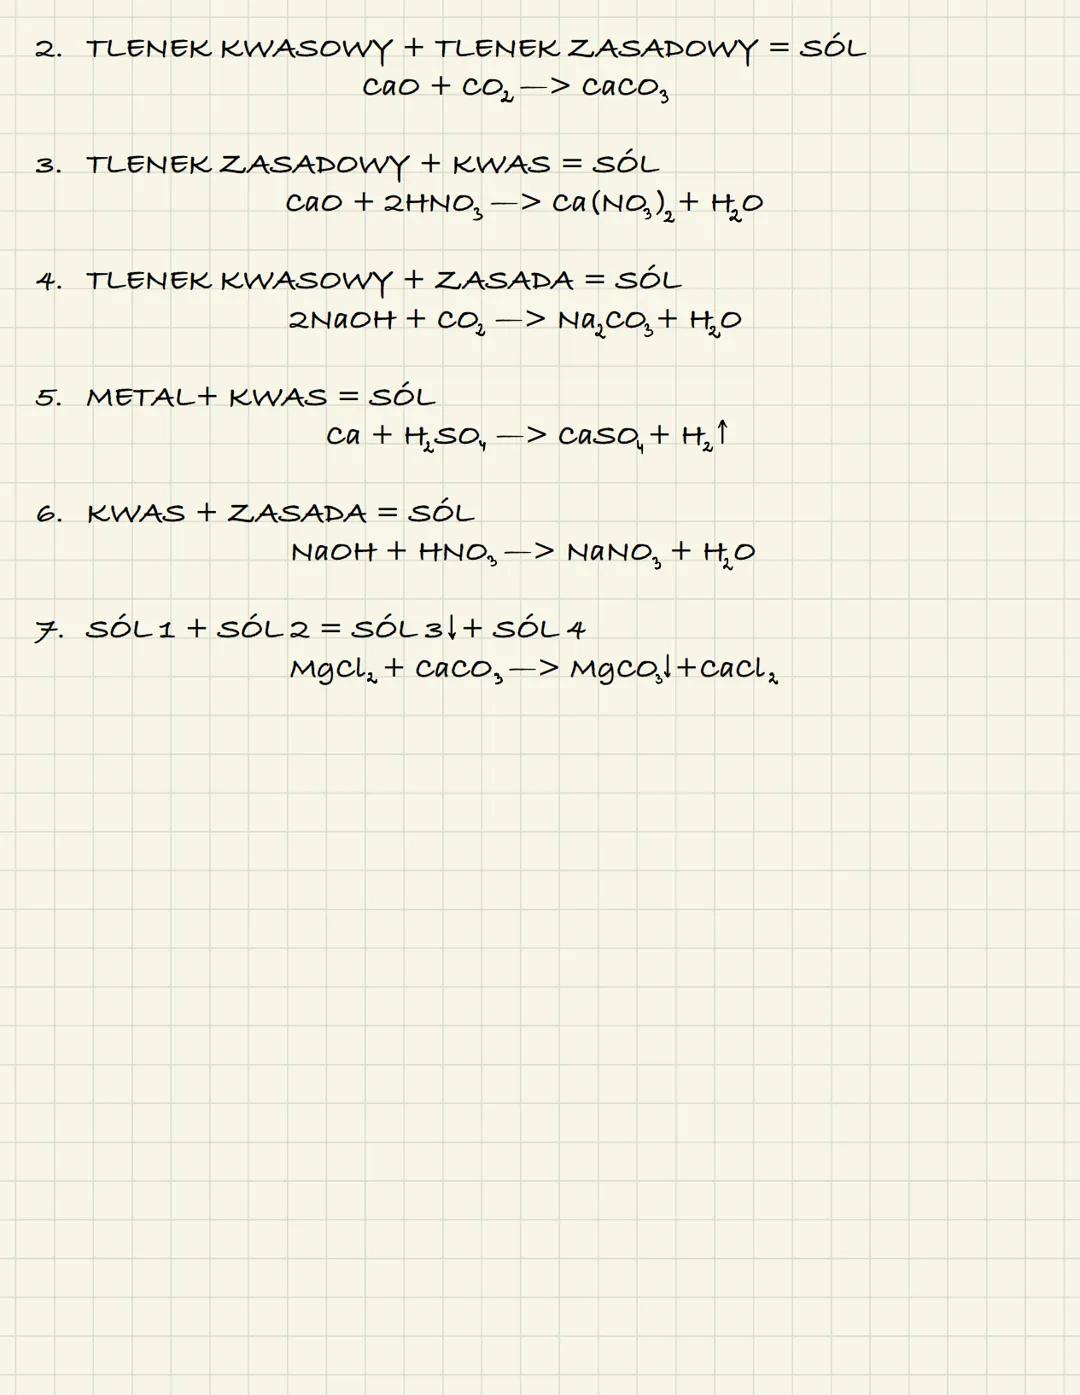 2. TLENEK KWASOWY + TLENEK ZASADOWY = SÓL
CaO + CO₂ —> CaCO₃
3. TLENEK ZASADOWY + KWAS = SÓL
CaO + 2HNO₃ —> Ca(NO₃)₂ + H₂O
4. TLENEK KWASOWY + ZASADA = SÓL
2NaOH + CO₂ —> Na₂CO₃ + H₂O
5. METAL + KWAS = SÓL
Ca + H₂SO₄ —> CaSO₄ + H₂↑
6. KWAS + ZASADA = SÓL
NaOH + HNO₃ —> NaNO₃ + H₂O
7. SÓL 1 + SÓL 2 = SÓL 3↓ + SÓL 4
MgCl₂ + CaCO₃ —> MgCO₃↓ + CaCl₂